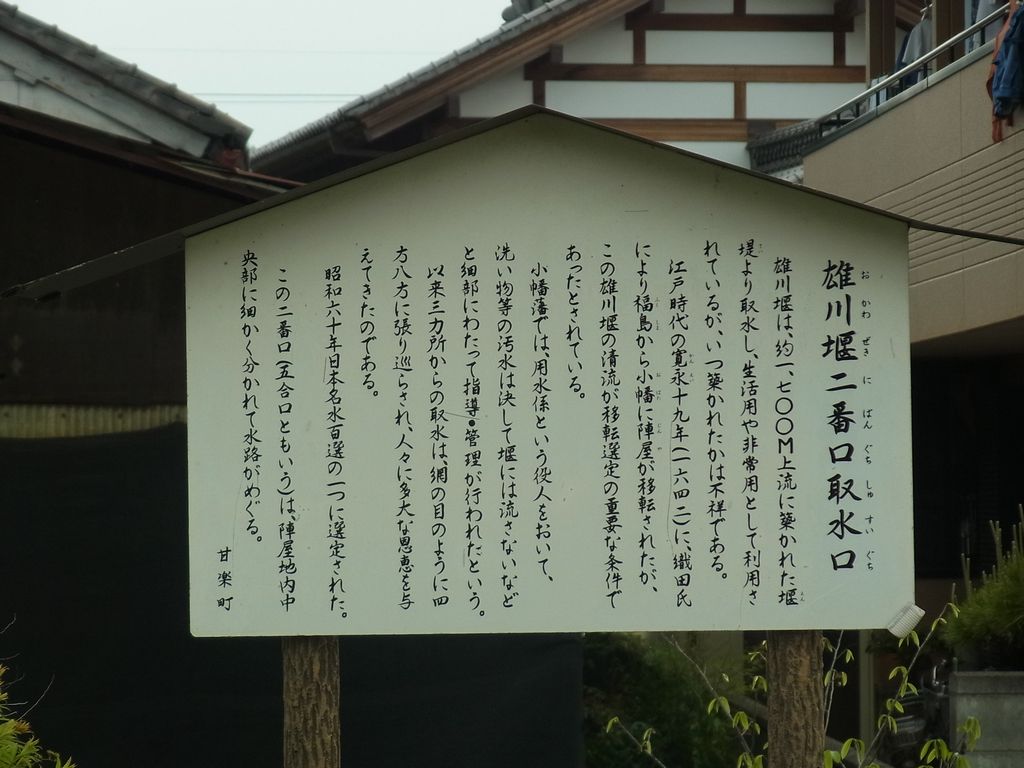 雄川堰二番口取水口
雄川堰は、約一、七〇〇M上流に築かれた堰
堤より取水し、生活用や非常用として利用さ
れているが、いつ築かれたかは不祥である。
江戸時代の寛永十九年(一六四二)に、織田氏
により福島から小幡に陣屋が移転されたが、
この雄川堰の清流が移転選定の重要な条件で
あったとされている。
小幡藩では、用水係という役人をおいて、
洗い物等の汚水は決して堰には流さないなど
と細部にわたって指導・管理が行われたという。
以来三カ所からの取水は、網の目のように四
方八方に張り巡らされ、人々に多大な恩恵を与
えてきたのである。
昭和六十年日本名水百選の一つに選定された。
この二番口(五合口ともいう)は、陣屋地内中
央部に細かく分かれて水路がめぐる。
甘楽町